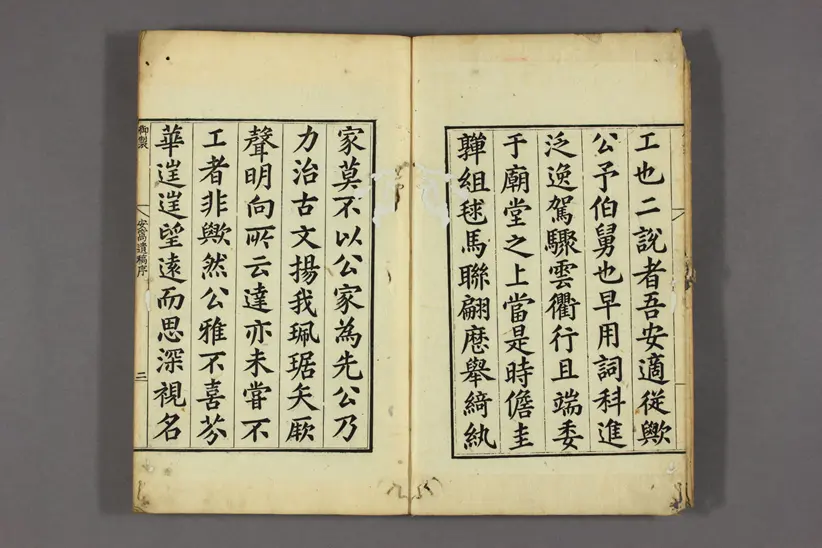 工也二說者吾安適從歟
公予伯舅也早用詞科進
泛逸駕驟雲衢行且端委
于廟堂之上當是時儋圭
韠組毬馬聯翩麽擧綺紈
家莫不以公家為先公乃
力治古文揚我珮琚矢厥
聲明向所云達亦未嘗不
工者非歟然公雅不喜芬
華逞逞望遠而思深視名
御製
安窩遺稿序
二